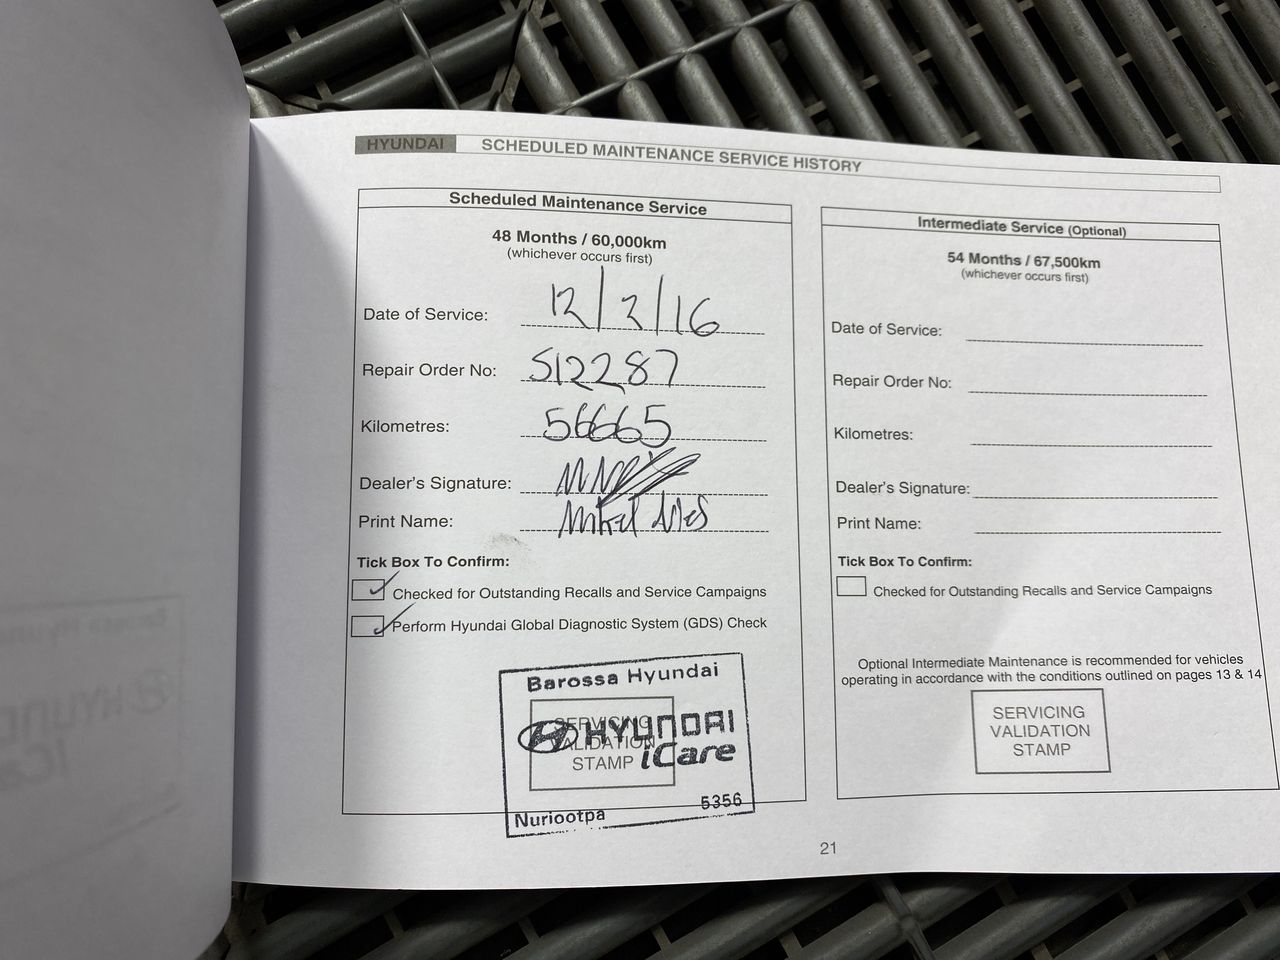 HYUNDAI SCHEDULED MAINTENANCE SERVICE HISTORY
Scheduled Maintenance Service
48 Months / 60,000km
(whichever occurs first)
Date of Service: 12/2/16
Repair Order No: 512287
Kilometres: 56665
Dealer's Signature:
Print Name:
Tick Box To Confirm:
Checked for Outstanding Recalls and Service Campaigns
Perform Hyundai Global Diagnostic System (GDS) Check
Barossa Hyundai
SERVICING
VALIDATION
STAMP
HYUNDAI
iCare
Nuriootpa 5356
Intermediate Service (Optional)
54 Months / 67,500km
(whichever occurs first)
Date of Service:
Repair Order No:
Kilometres:
Dealer's Signature:
Print Name:
Tick Box To Confirm:
Checked for Outstanding Recalls and Service Campaigns
Optional Intermediate Maintenance is recommended for vehicles
operating in accordance with the conditions outlined on pages 13 & 14
SERVICING
VALIDATION
STAMP
21